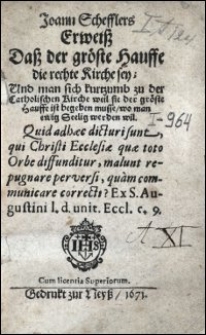 Joann Schefflers
Erweiß
Daß der gröste Hauffe
die rechte Kirche sey:
Und man sich kurtzumb zu der
Catholischen Kirche weil sie der gröste
Hauffe ist begeben müsse/ wo man
ewig Seelig werden wil.
I-964
Quid adhæc dicturi sunt,
qui Christi Ecclesiæ quæ toto
Orbe diffunditur, malunt re-
pugnare perversi, quàm com-
municare correcti? Ex S. Au-
gustini l. d. unit. Eccl. c. 9.
XI
IHS
Cum licentia Superiorum.
Gedrukt zur Neyß/ 1671.